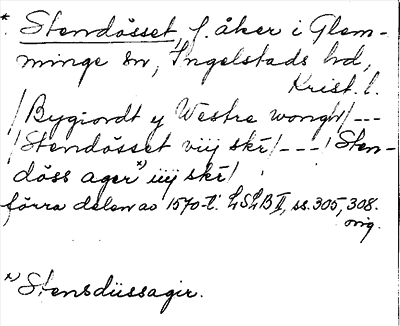 * Stendösset, f. åker i Glem-
minge sn, Ingelstads hd,
Krist. l.
/Bygiordt y Westre wongh/---
/Stendösset viij skr/---/Sten-
döss ager *) iiij skr/
förra delen av 1570-t. LSLB II, ss. 305, 308.
orig.
*) Stensdüssagir.